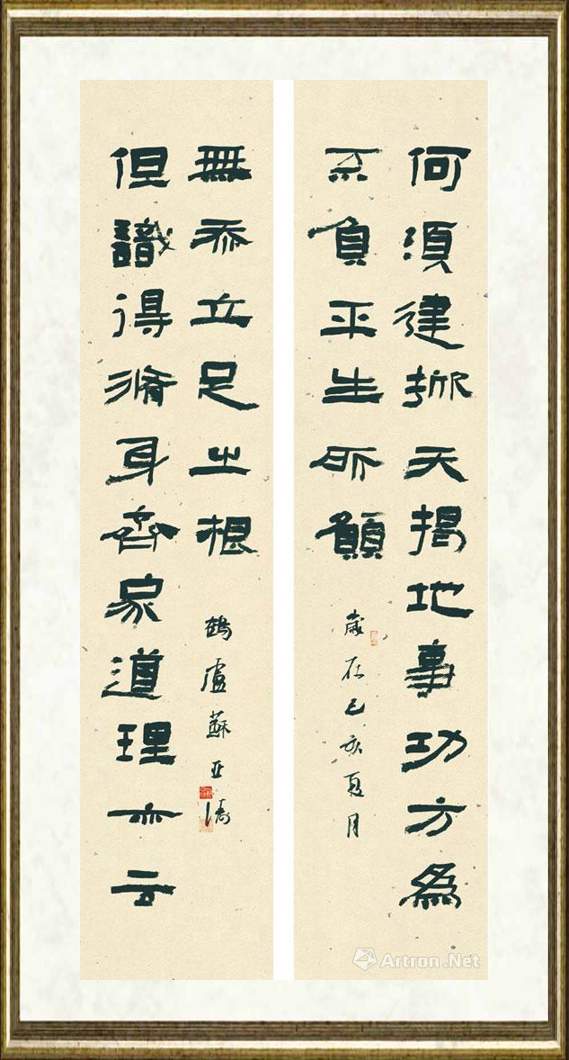 何須建掀天揭地事功方為
不負平生所願
歲在己亥夏月
但識得脩身齊家道理亦云
無忝立足之根
鶴盧蘇亞濤
Artron.Net